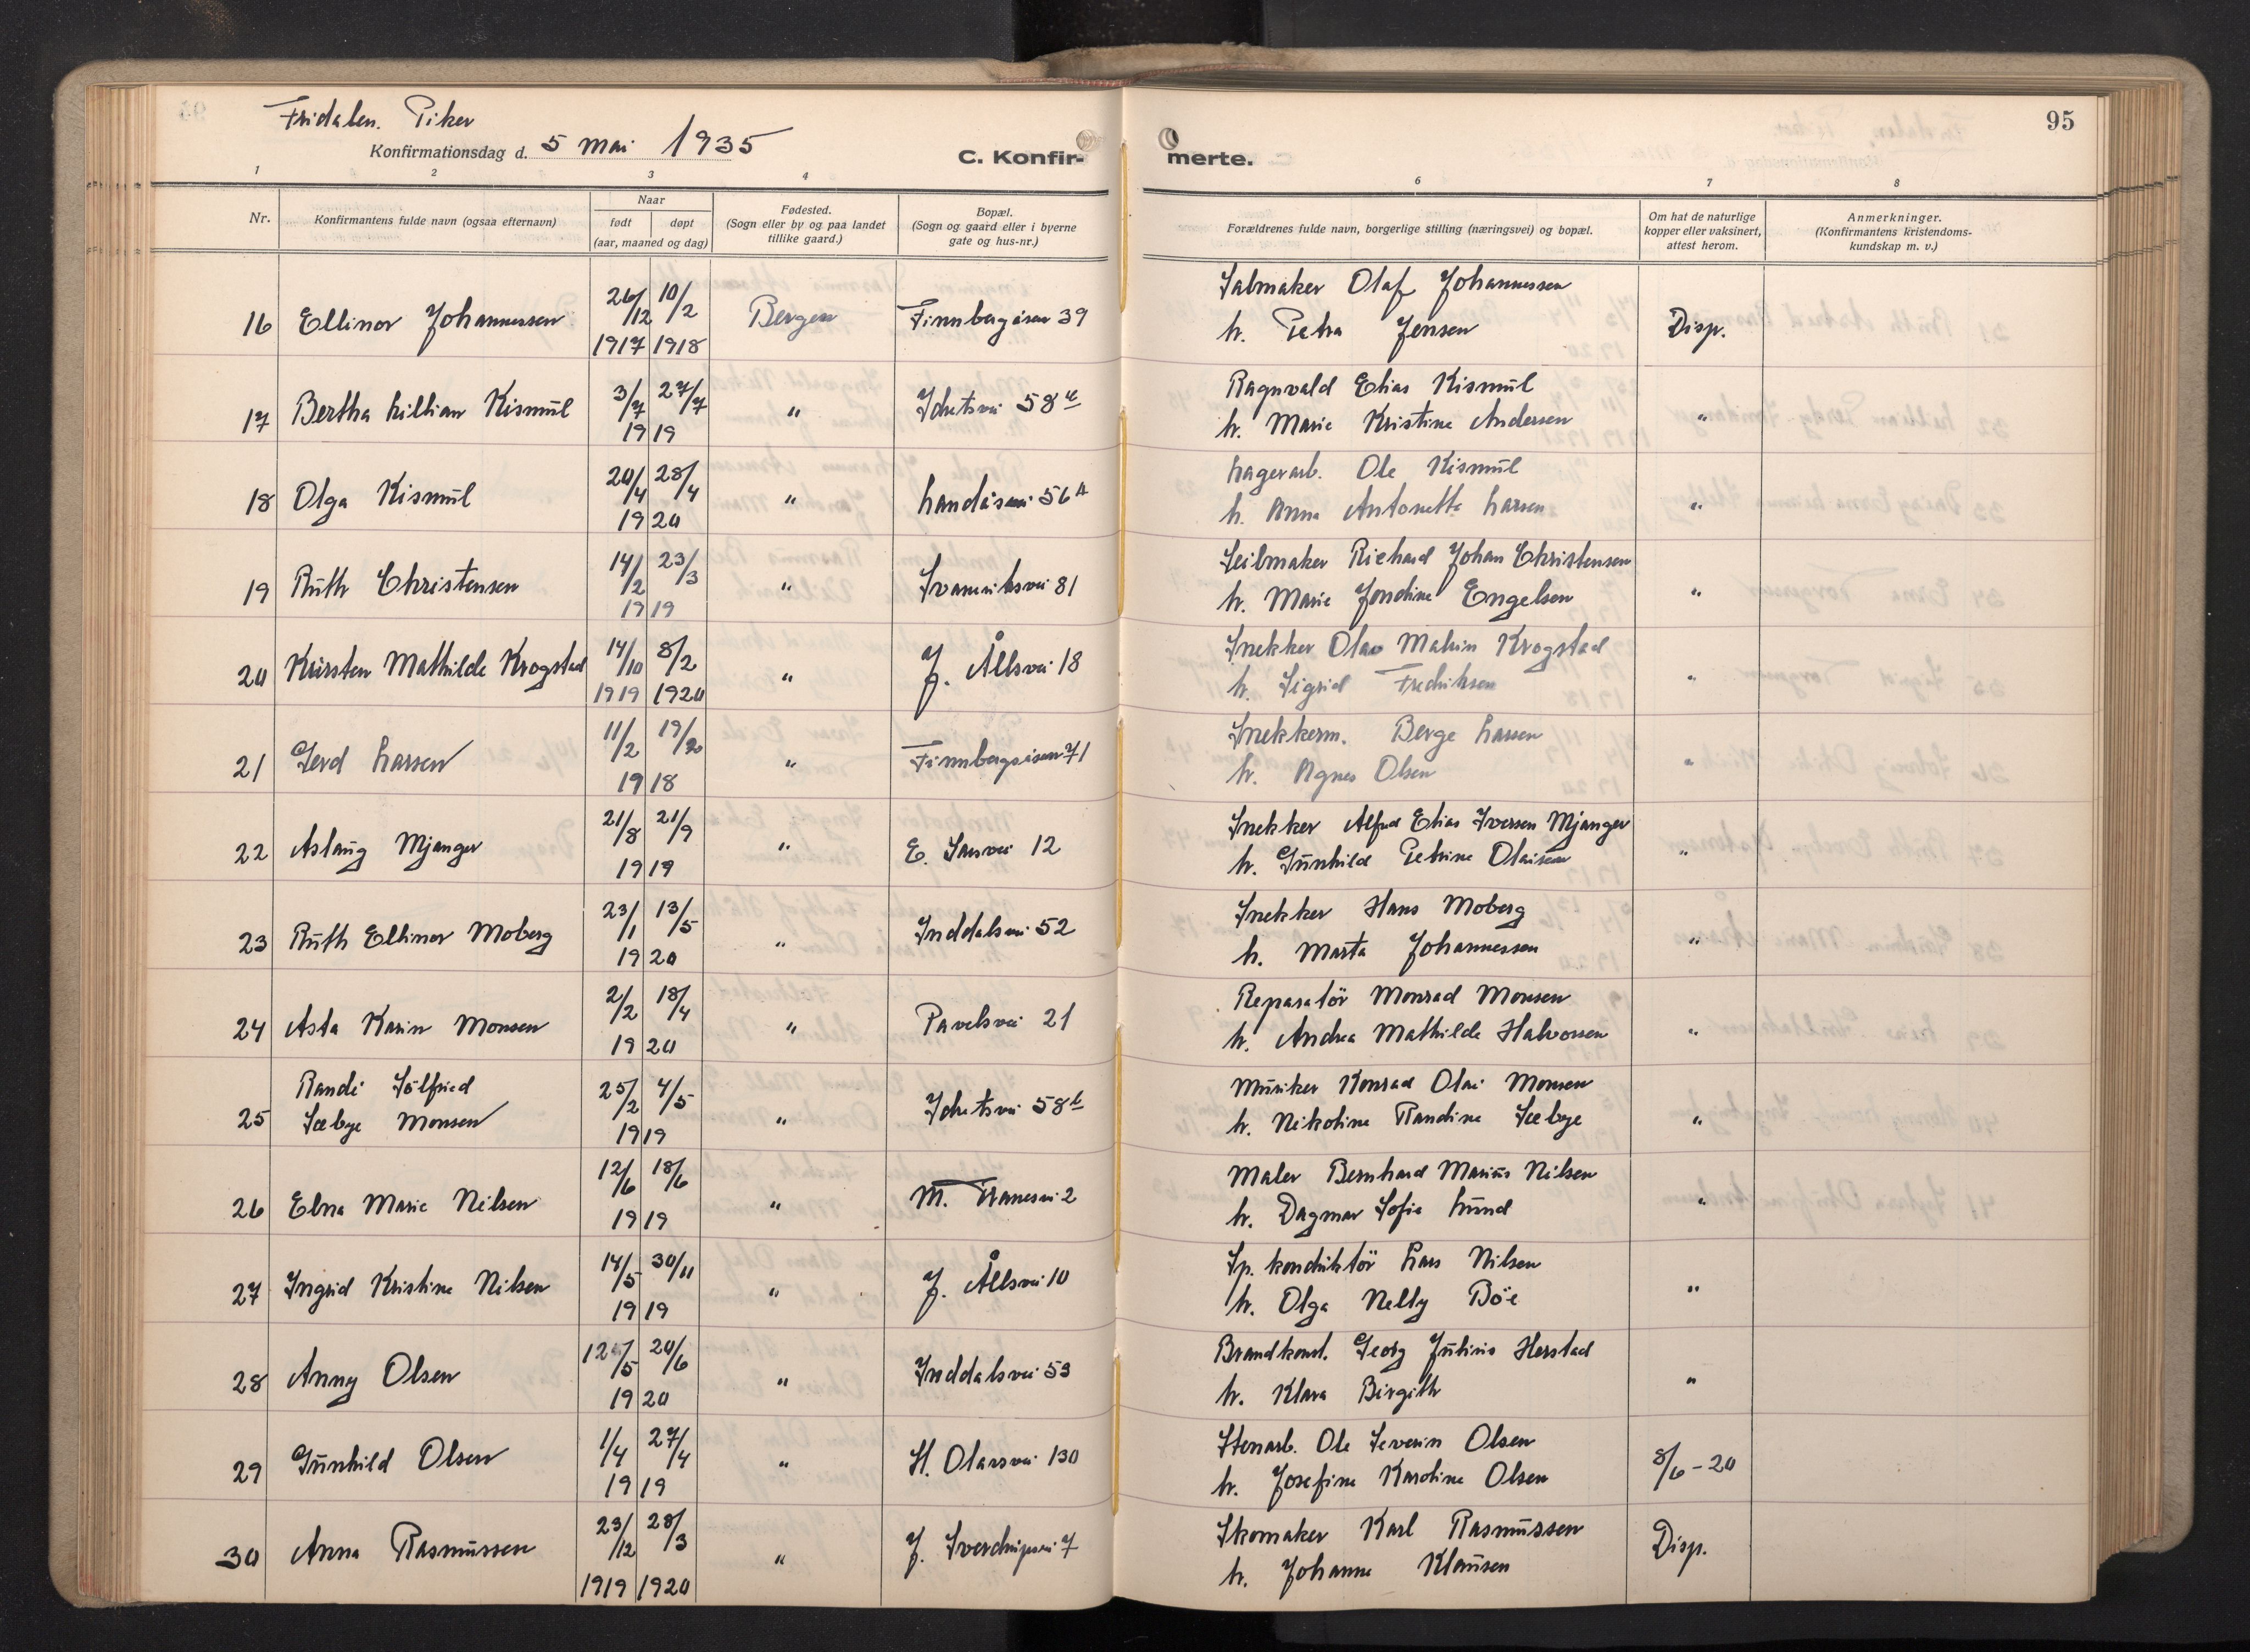 Fridalen. Piker
Konfirmationsdag d. 5 mai 1935
C. Konfir-
merte.
95
1 2 3 4 6 7 8
Nr.
Konfirmantens fulde navn (ogsaa efternavn)
Naar
født døpt
(aar, maaned og dag)
Fødested.
(Sogn eller by og paa landet
tillike gaard.)
Bopæl.
(Sogn og gaard eller i byerne
gate og hus-nr.)
Forældrenes fulde navn, borgerlige stilling (næringsvei) og bopæl.
Om hat de naturlige
kopper eller vaksinert,
attest herom.
Anmerkninger.
(Konfirmantens kristendoms-
kundskap m. v.)
Salmaker Olaf Johannessen
16 Ellinor Johannessen 26/12 1917 10/2 1918 Bergen Finnbergåsen 39
h. Petra Jensen Disp.
Ragnvald Elias Kismül
17 Bertha Lillian Kismül 3/7 27/7 1919 " Idretsvei 58
h. Marie Kristine Andersen "
Lagerarb. Ole Kismül
18 Olga Kismül 20/4 28/4 1920 " Landåsvei 56A
h. Anna Antonette Larsen "
Seilmaker Richard Johan Christensen
19 Ruth Christensen 14/2 23/3 1919 " Svaneviksvei 81
h. Marie Jondine Engelsen "
Snekker Olav Malvin Krogstad
20 Kirsten Mathilde Krogstad 14/10 1919 8/2 1920 " J.Ållsvei 18
h. Sigrid Fredriksen "
Snekkerm. Berge Larsen
21 Gerd Larsen 11/2 1918 " Finnbergsåsen 71
h. Agnes Olsen "
Snekker Alfred Elias Iversen Mjanger
22 Aslaug Mjanger 21/8 21/9 1919 " E. Sarsvei 12
h. Gunhild Petrine Olaisen "
Snekker Hans Moberg
23 Ruth Ellinor Moberg 23/1 13/5 1920 " Inddalsvei 52
h. Marta Johannessen "
Reparatör Monrad Monsen
24 Asta Karin Monsen 2/2 18/4 1920 " Pavelsvei 21
h. Andrea Mathilde Halvorsen "
Musiker Konrad Olai Monsen
Randi Sölfried
25 Sæbye Monsen 25/2 4/5 1919 " Idretsvei 58
h. Nikoline Randine Sæbye "
Maler Bernhard Marius Nilsen
26 Elna Marie Nilsen 12/6 18/6 1919 " M. Tranesvei 2
h. Dagmar Sofie Lund "
Sp. konduktör Lars Nilsen
27 Ingrid Kristine Nilsen 14/5 30/11 1919 " J. Ållsvei 10
h. Olga Nelly Böe "
Brandkonst. Georg Julius Herstad
28 Anny Olsen 12/5 20/6 1920 " Inddalsvei 53
h. Klara Birgith "
Stenarb. Ole Severin Olsen
29 Gunhild Olsen 1/4 27/4 1919 " H. Olavsvei 130
h. Josefine Karoline Olsen 8/6-20
Skomaker Karl Rasmussen
30 Anna Rasmussen 23/12 1919 28/3 1920 " J. Sverdrupsvei 7
h. Johanne Klausen Disp.